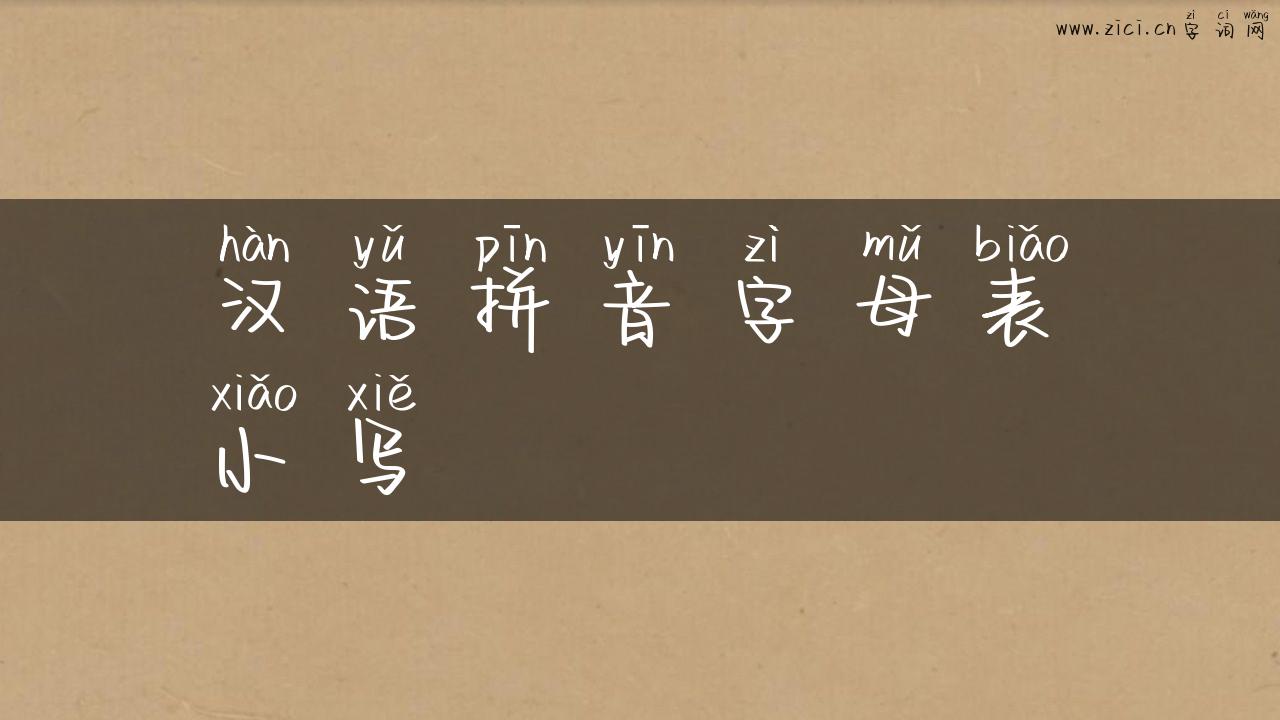 zì cí wǎng
www.zici.cn 字词网
hàn yǔ pīn yīn zì mǔ biǎo
汉语拼音字母表
xiǎo xiě
小写